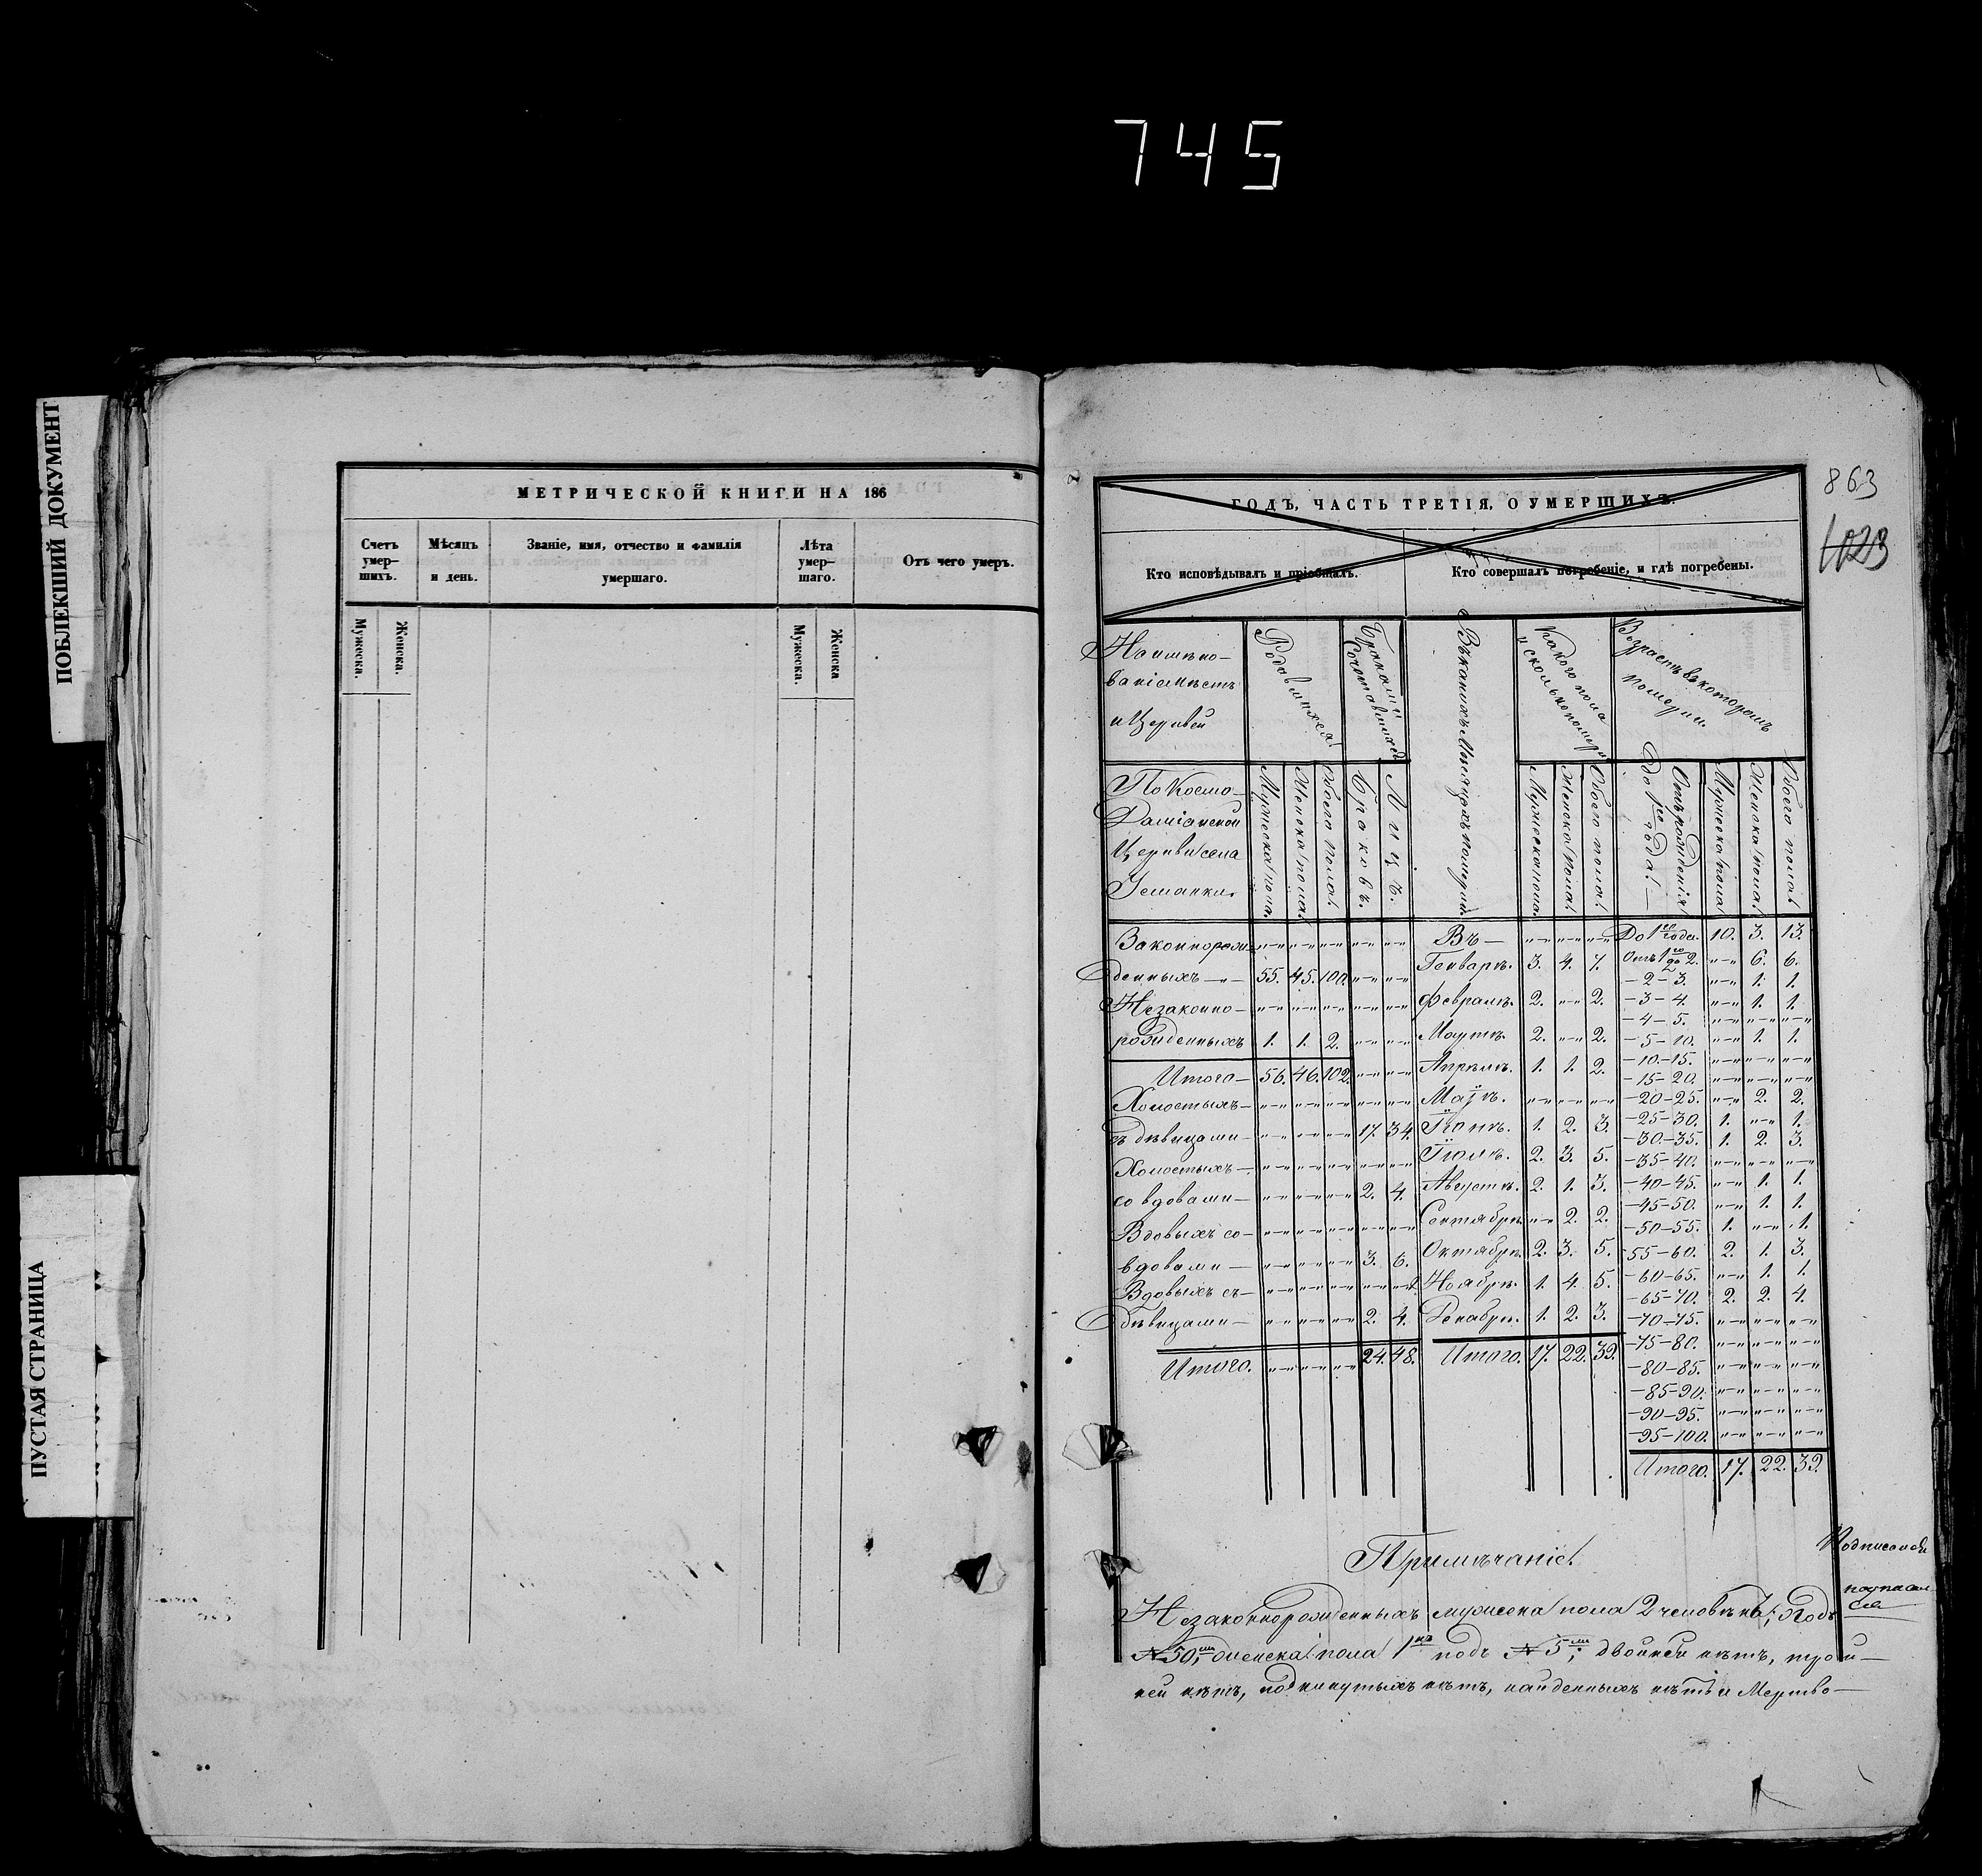 745
ПОБЛЕКШИЙ ДОКУМЕНТ
ПУСТАЯ СТРАНИЦА
МЕТРИЧЕСКОЙ КНИГИ НА 186
Счетъ умер-шихъ. Мѣсяцъ и день. Званіе, имя, отчество и фамилія умершаго. Лѣта умер-шаго. Отъ чего умеръ.
Мужеска. Женска. Мужеска. Женска
ГОДЪ, ЧАСТЬ ТРЕТІЯ, О УМЕРШИХЪ.
863
1023
Кто исповѣдывалъ и пріобщалъ. Кто совершалъ погребеніе, и гдѣ погребены.
Наимѣно-
ваніе мѣстъ
и Церквей
Родившихся
Браками Сочетавшихся
Въ какихъ Мѣсяцахъ померли.
Какого пола и сколько померло
Возрастъ въ которомъ померли.
По Космо-
Даміанской
Церкви села
Усманки.
Мужеска пола. Женска пола. Обоего пола. Браковъ. Лицъ.
Мужеска пола. Женска пола. Обоего пола.
Отъ рожденія до 1го года. Мужеска пола Женска пола. Обоего пола.
Законнорож-
денныхъ 55. 45. 100.
Незаконно-
рожденныхъ 1. 1. 2.
Итого 56. 46. 102.
Холостыхъ
съ дѣвицами 17. 34.
Холостыхъ
со вдовами 2. 4.
Вдовыхъ со
вдовами 3. 6.
Вдовыхъ съ
дѣвицами 2. 4.
Итого. 24. 48.
Въ
Генварѣ. 3. 4. 7.
Февралѣ. 2. „ 2.
Мартѣ. 2. „ 2.
Апрѣлѣ. 1. 1. 2.
Маѣ. „ „ „
Іюнѣ. 1. 2. 3.
Іюлѣ. 2. 3. 5.
Августѣ. 2. 1. 3.
Сентябрѣ „ 2. 2.
Октябрѣ. 2. 3. 5.
Ноябрѣ. 1. 4. 5.
Декабрѣ. 1. 2. 3.
Итого. 17. 22. 39.
До 1го года. 10. 3. 13.
Отъ 1го до 2. „ 6. 6.
2-3. „ 1. 1.
3-4. „ 1. 1.
4-5. „ „ „
5-10. „ 1. 1.
10-15. „ „ „
15-20. „ „ „
20-25. „ 2. 2.
25-30. 1. „ 1.
30-35. 1. 2. 3.
35-40. „ „ „
40-45. „ 1. 1.
45-50. „ 1. 1.
50-55. 1. „ 1.
55-60. 2. 1. 3.
60-65. „ 1. 1.
65-70. 2. 2. 4.
70-75. „ „ „
75-80. „ „ „
80-85. „ „ „
85-90. „ „ „
90-95. „ „ „
95-100. „ „ „
Итого. 17. 22. 39.
Примѣчаніе.
Незаконнорожденныхъ мужска пола 2 человѣка; Подъ
№ 50, женска пола 1 подъ № 5; двойней нѣтъ, трой-
ней нѣтъ, подкинутыхъ нѣтъ, найденныхъ нѣтъ и Мертво-